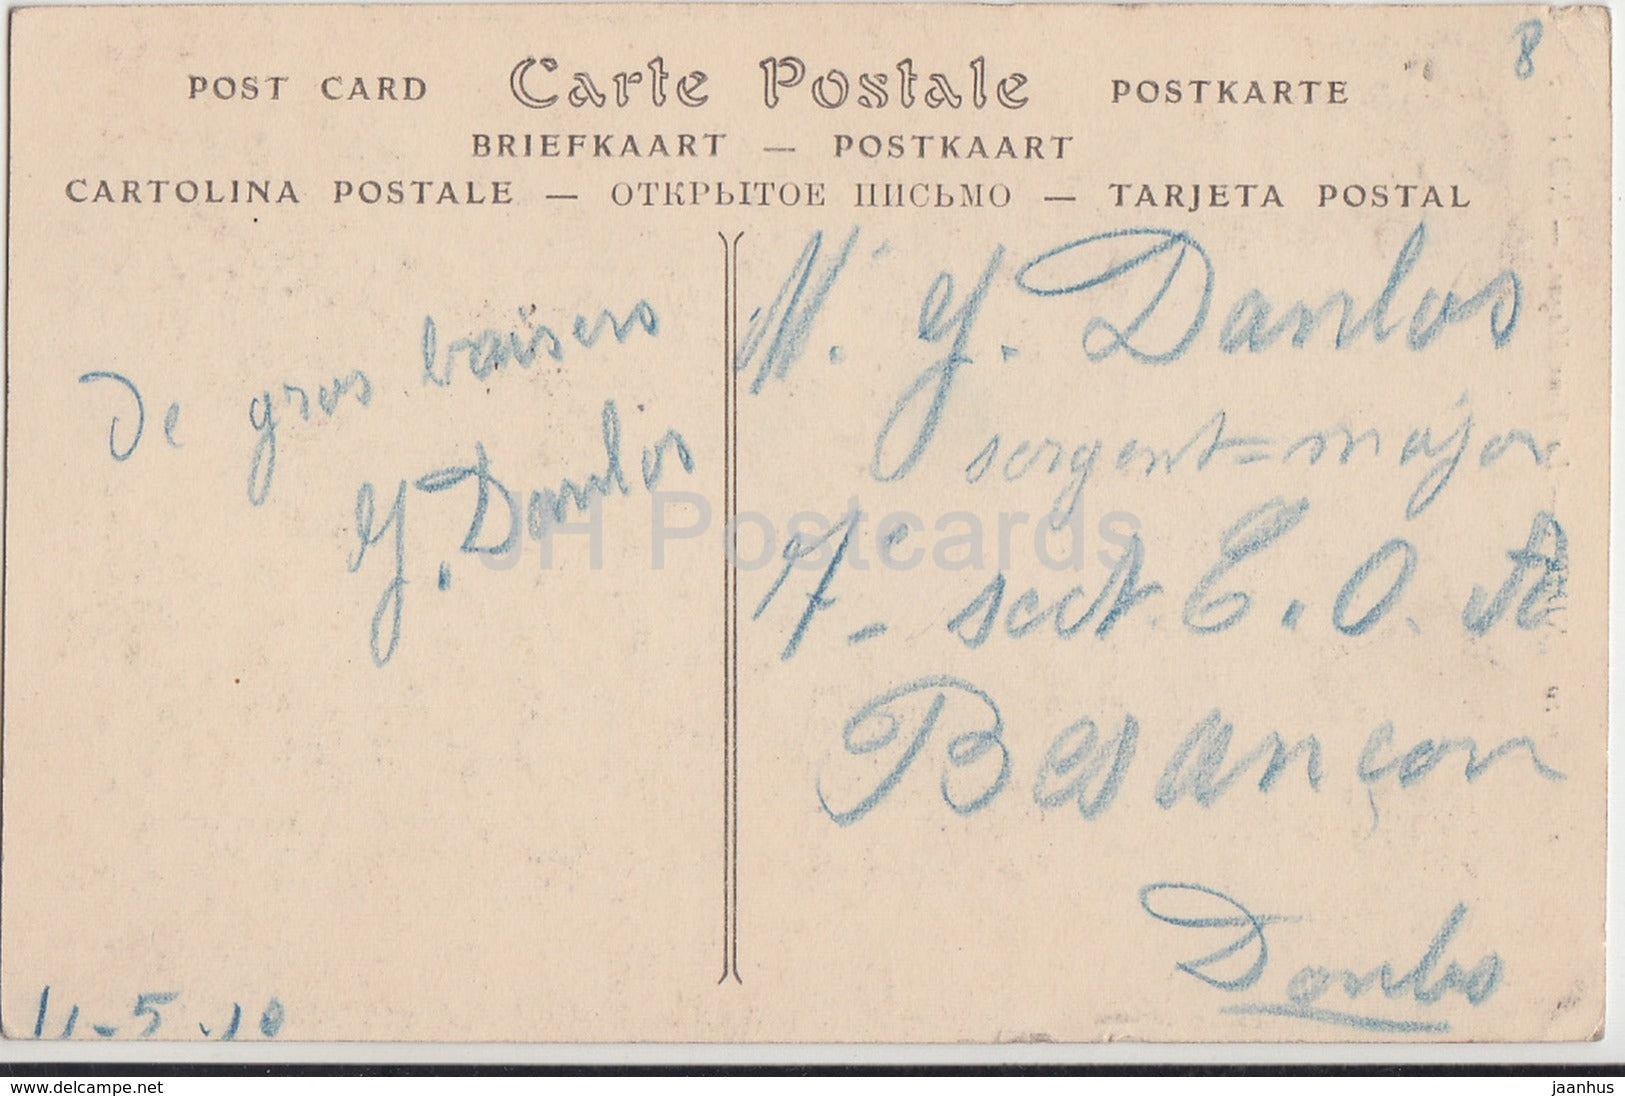 8
POST CARD Carte Postale POSTKARTE
BRIEFKAART — POSTKAART
CARTOLINA POSTALE — ОТКРЫТОЕ ПИСЬМО — TARJETA POSTAL
De gros baisers
Y. Danlos
11-5.10
M. Y. Danlos
sergent-major
7e sect. C. O. A
Besançon
Doubs
JH Postcards
www.delcampe.net
jaanhus